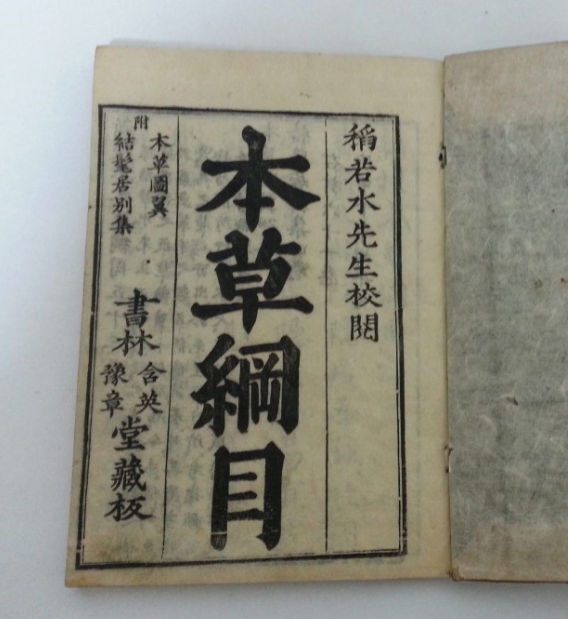 稲若水先生校閱
本草綱目
附
本草圖翼
結髦居别集
書林
含英
豫章
堂藏板